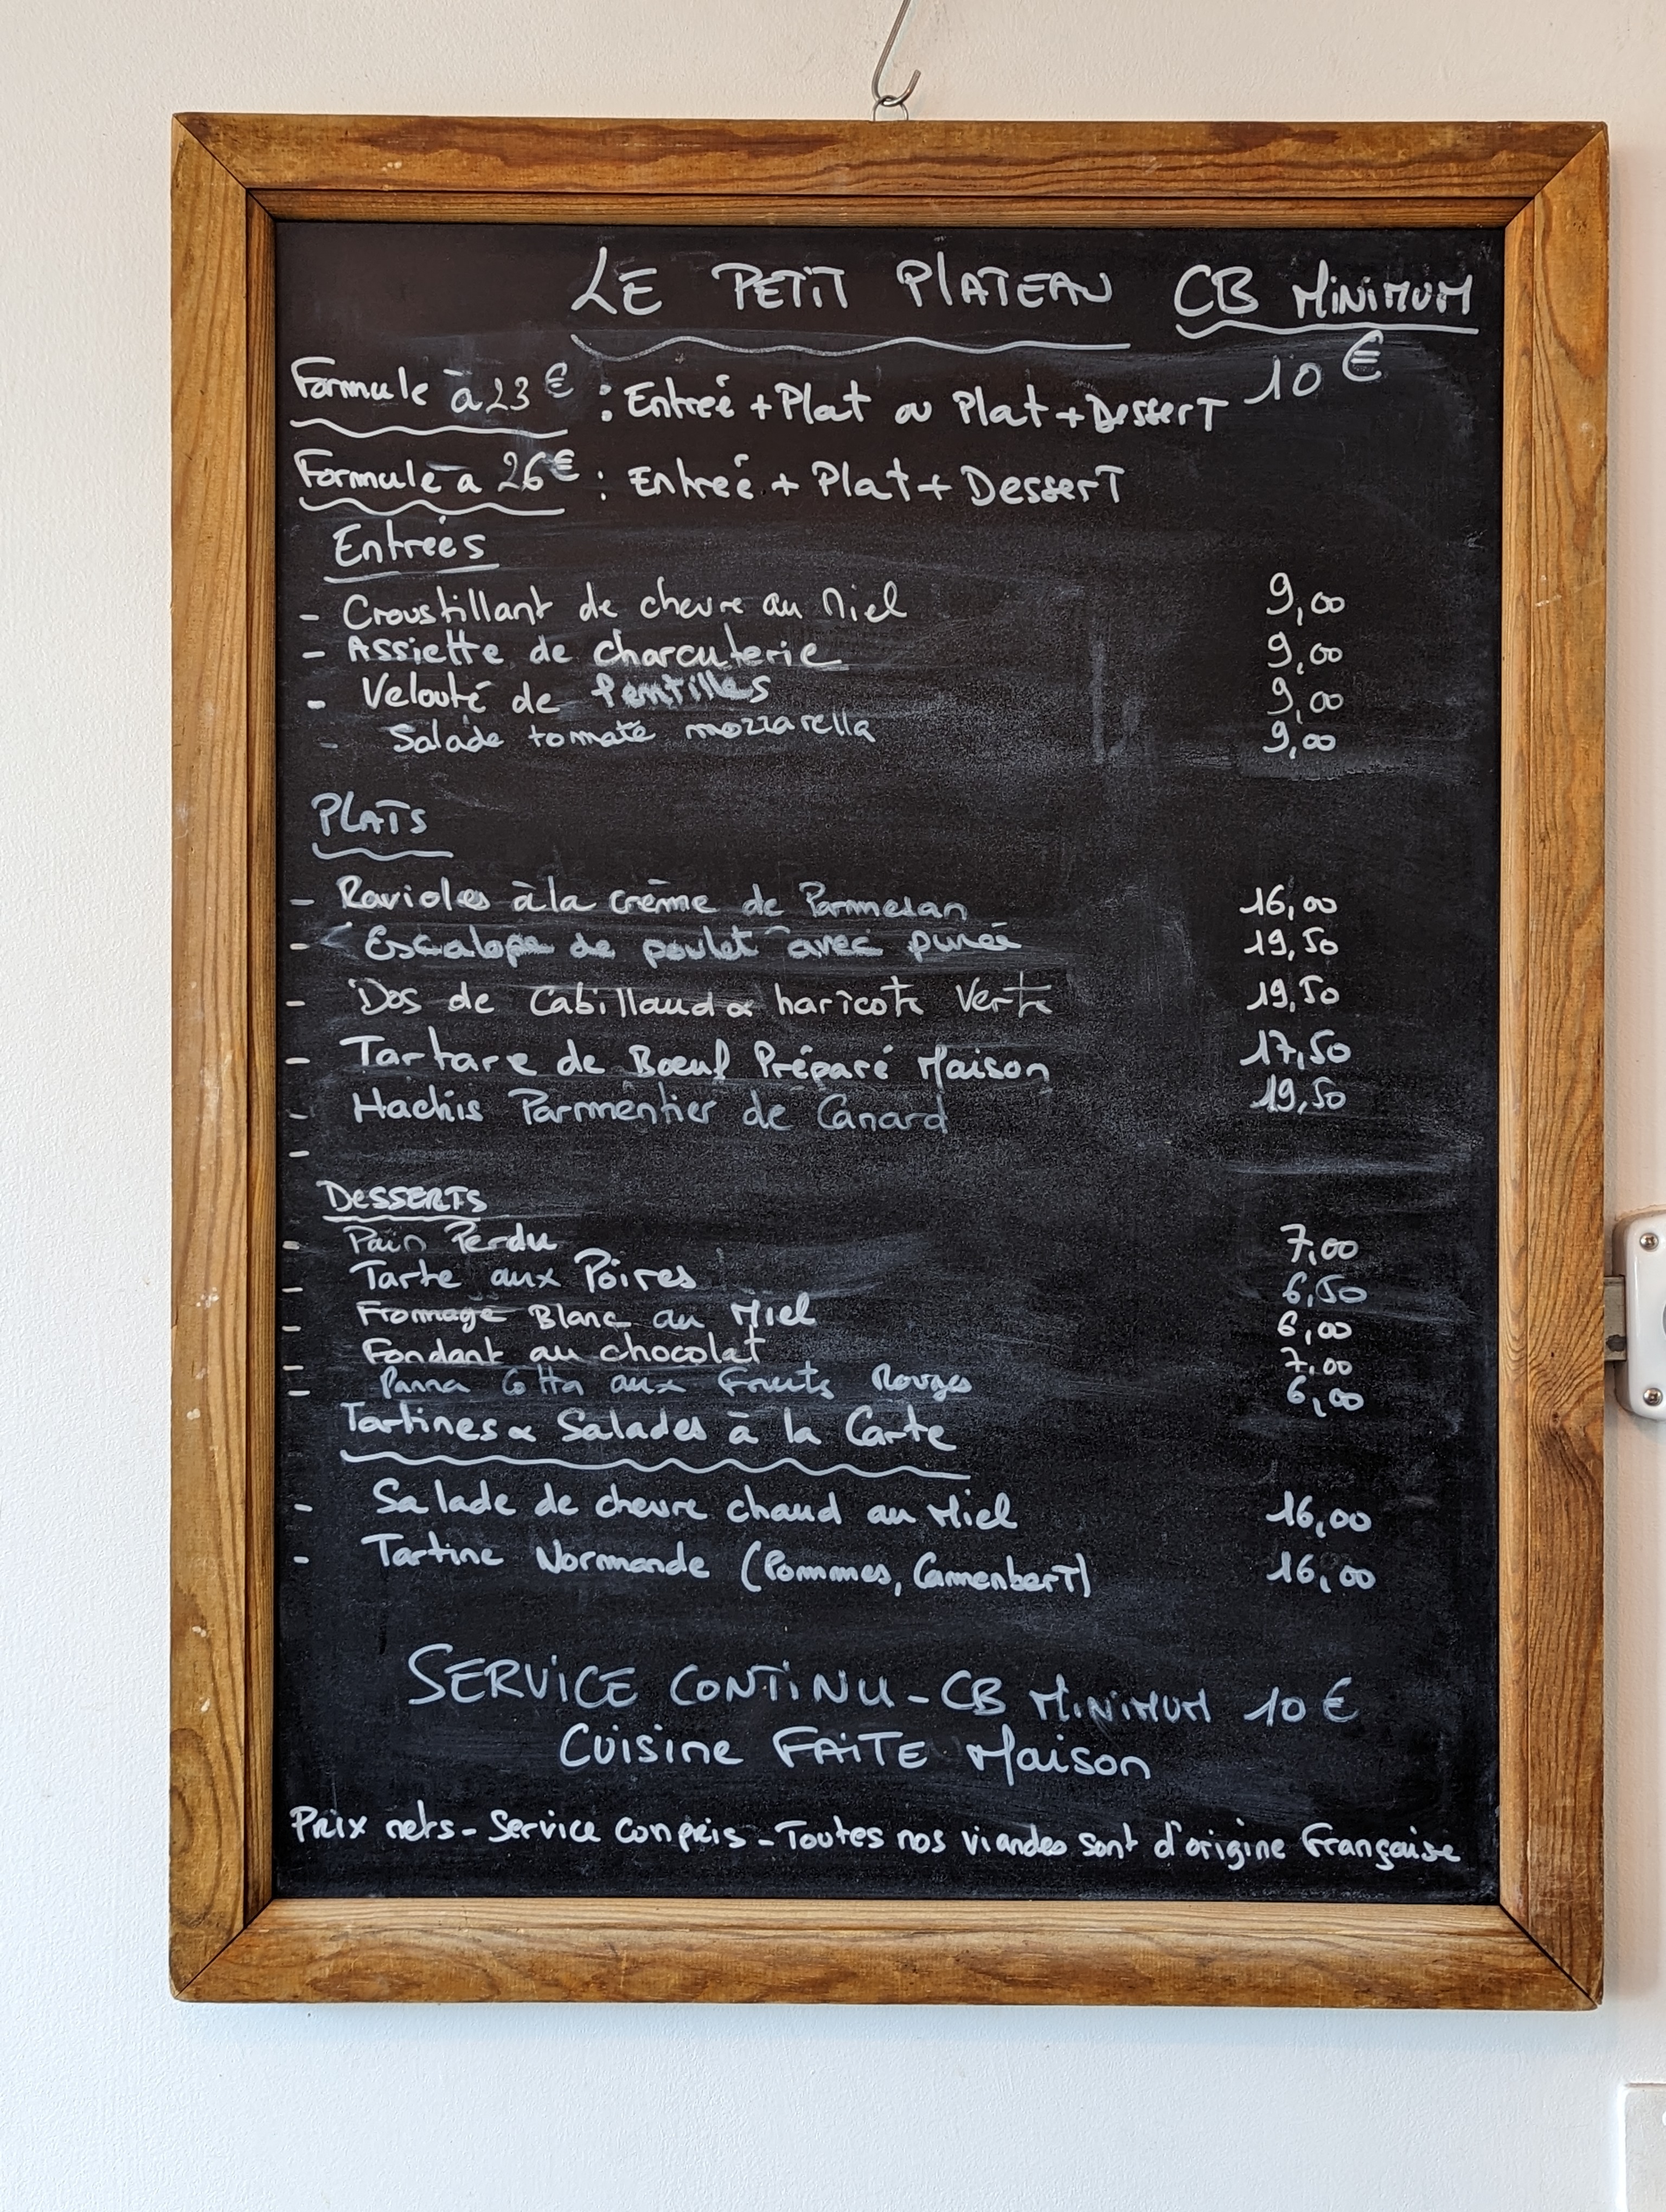 LE PETIT PLATEAU CB MINIMUM
10 €
Formule à 23 € : Entreé + Plat ou Plat + Dessert
Formule à 26 € : Entreé + Plat + Dessert
Entreés
- Croustillant de chevre au Miel 9,00
- Assiette de charcuterie 9,00
- Velouté de lentilles 9,00
- Salade tomate mozzarella 9,00
PLATS
- Ravioles à la crème de Parmesan 16,00
- Escalope de poulet avec pureé 19,50
- Dos de Cabillaud & haricots Verts 19,50
- Tartare de Bœuf Préparé Maison 17,50
- Hachis Parmentier de Canard 19,50
-
DESSERTS
- Pain Perdu 7,00
- Tarte aux Poires 6,50
- Fromage Blanc au Miel 6,00
- Fondant au chocolat 7,00
- Panna Cotta aux Fruits Rouges 6,00
Tartines & Salades à la Carte
- Salade de chevre chaud au Miel 16,00
- Tartine Normande (Pommes, Camenbert) 16,00
SERVICE CONTINU - CB MINIMUM 10 €
Cuisine FAITE Maison
Prix nets - Service Compris - Toutes nos viandes sont d'origine Française